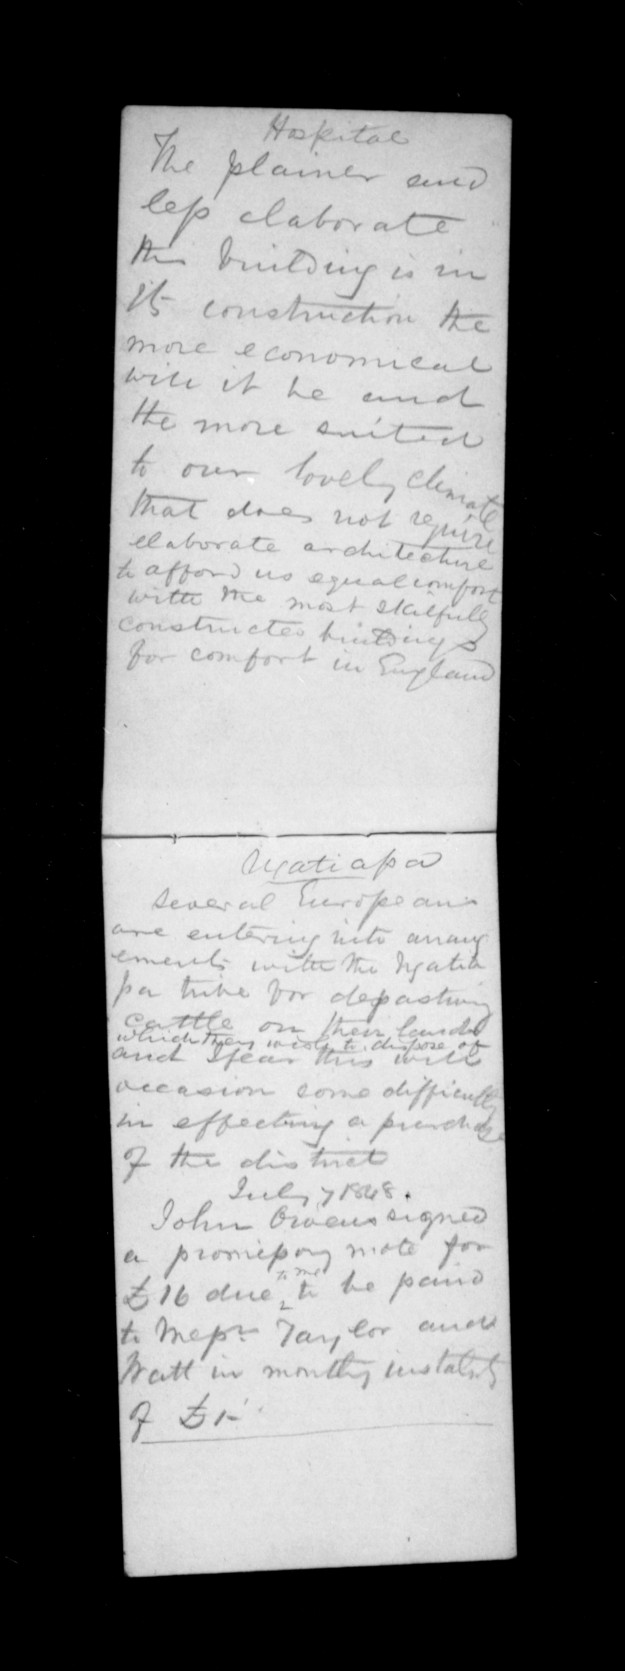 Hospital
The plainer and
less elaborate
the building is in
its construction the
more economical
will it be and
the more suited
to our lovely climate
that does not require
elaborate architecture
to afford us equal comfort
with the most skilfully
constructed buildings
for comfort in England
Ngatiapa
Several Europeans
are entering into arrang
ements with the Ngatia
pa tribe for depasturing
cattle on their lands
which they wish to dispose of
and I fear this will
occasion some difficulty
in effecting a purchase
of the district
July 7 1848.
John Owens signed
a promissory note for
£16 due to me to be paid
to Messrs Taylor and
Watt in monthly instalmts
of £1-